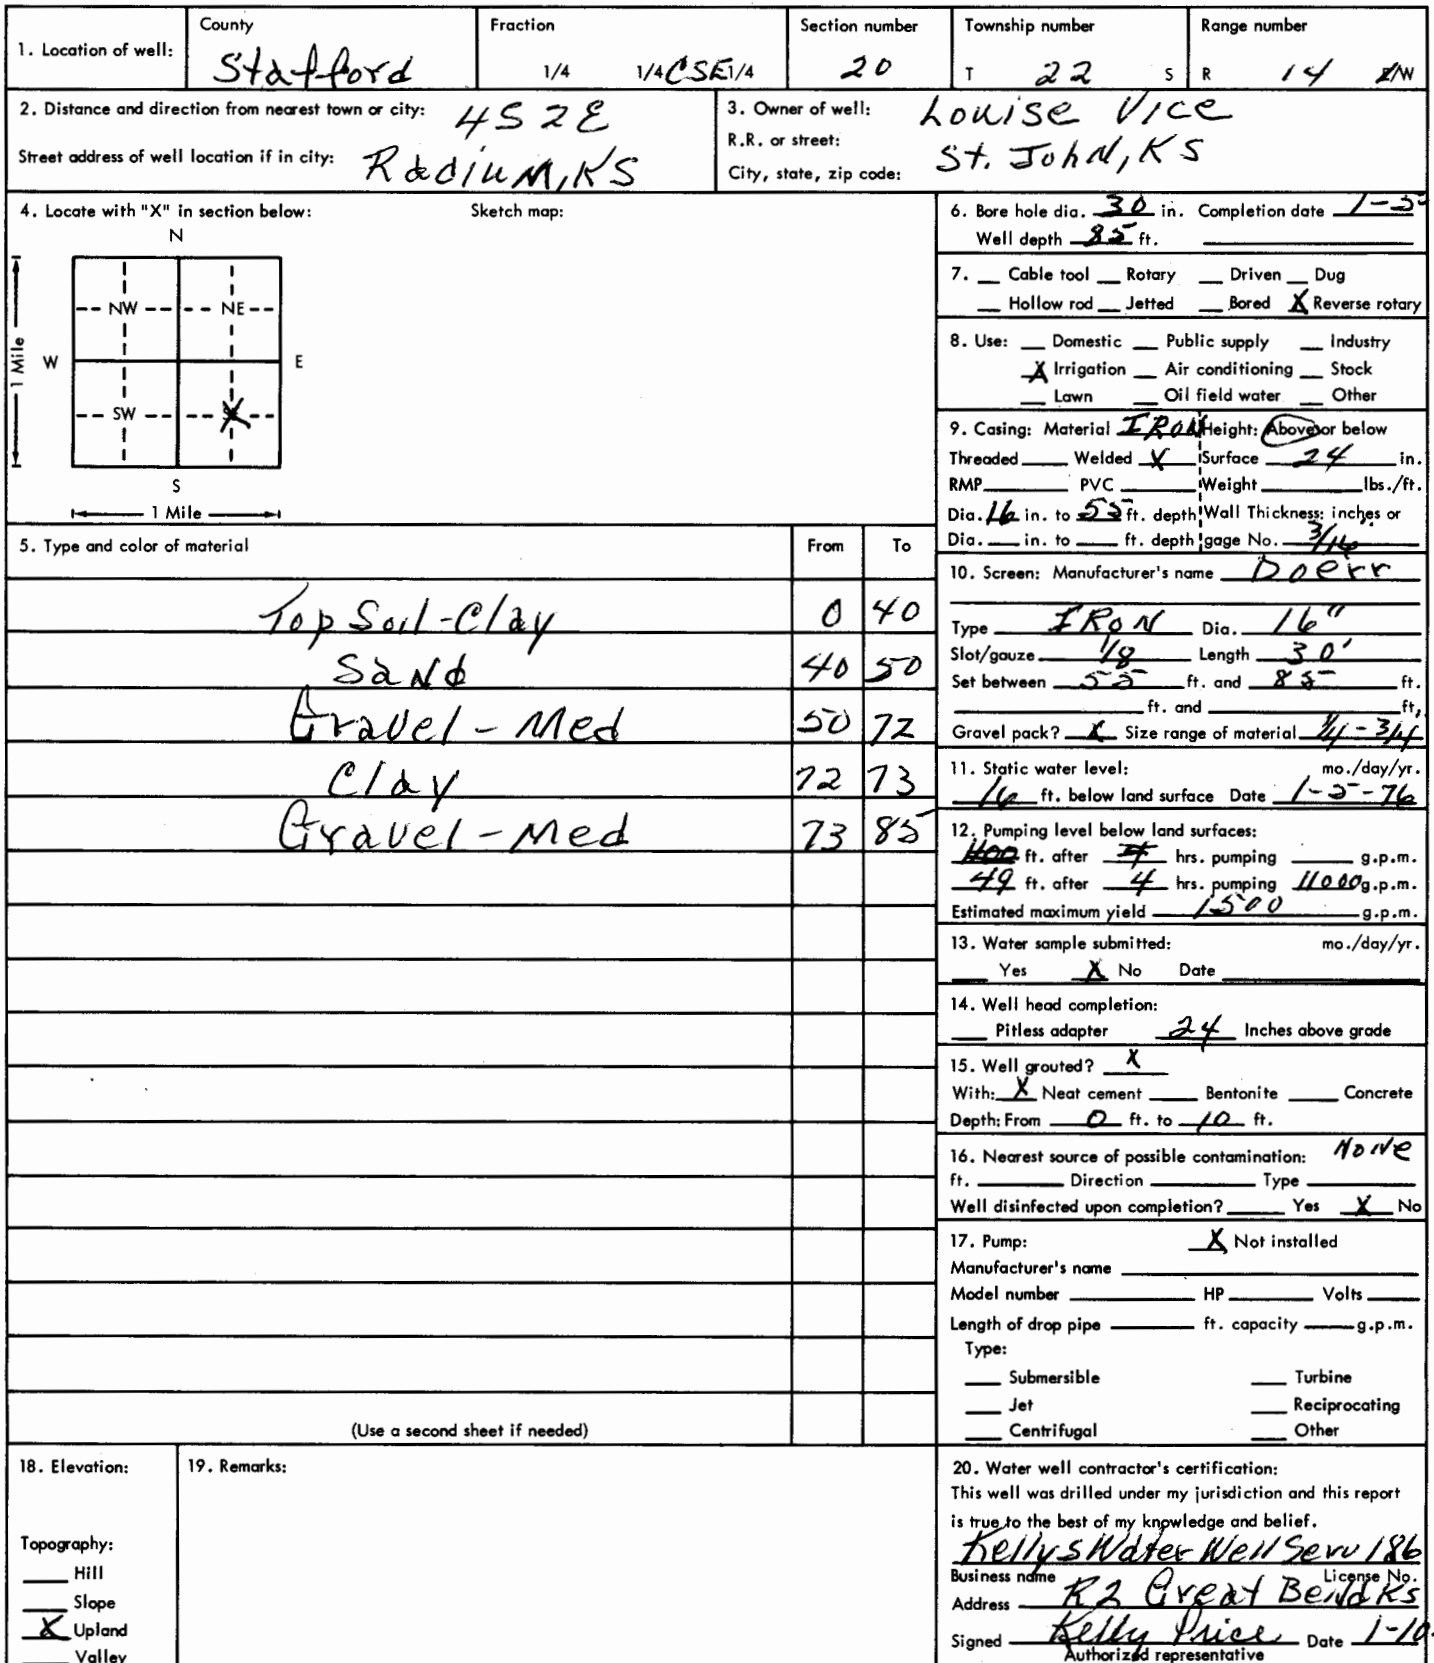 1. Location of well: County Fraction Section number Township number Range number
Stafford 1/4 1/4 CSE 1/4 20 T 22 S R 14 E/W
2. Distance and direction from nearest town or city: 4S 2E
Street address of well location if in city: Radium, KS
3. Owner of well: Louise Vice
R.R. or street:
City, state, zip code: St. John, KS
4. Locate with "X" in section below: Sketch map:
N
NW NE
W E
1 Mile
SW X
S
1 Mile
5. Type and color of material From To
Top Soil-Clay 0 40
Sand 40 50
Gravel - Med 50 72
Clay 72 73
Gravel - Med 73 85
(Use a second sheet if needed)
6. Bore hole dia. 30 in. Completion date 1-5-
Well depth 85 ft.
7. Cable tool Rotary Driven Dug
Hollow rod Jetted Bored X Reverse rotary
8. Use: Domestic Public supply Industry
X Irrigation Air conditioning Stock
Lawn Oil field water Other
9. Casing: Material IRON Height: Above or below
Threaded Welded X Surface 24 in.
RMP PVC Weight lbs./ft.
Dia. 16 in. to 55 ft. depth Wall Thickness: inches or
Dia. in. to ft. depth gage No. 3/16"
10. Screen: Manufacturer's name Doerr
Type IRON Dia. 16"
Slot/gauze 1/8 Length 30'
Set between 55 ft. and 85 ft.
ft. and ft.
Gravel pack? X Size range of material 1/4 - 3/4
11. Static water level: mo./day/yr.
16 ft. below land surface Date 1-5-76
12. Pumping level below land surfaces:
ft. after hrs. pumping g.p.m.
49 ft. after 4 hrs. pumping 11000 g.p.m.
Estimated maximum yield 1500 g.p.m.
13. Water sample submitted: mo./day/yr.
Yes X No Date
14. Well head completion:
Pitless adapter 24 Inches above grade
15. Well grouted? X
With: X Neat cement Bentonite Concrete
Depth: From 0 ft. to 10 ft.
16. Nearest source of possible contamination: None
ft. Direction Type
Well disinfected upon completion? Yes X No
17. Pump: X Not installed
Manufacturer's name
Model number HP Volts
Length of drop pipe ft. capacity g.p.m.
Type:
Submersible Turbine
Jet Reciprocating
Centrifugal Other
18. Elevation:
Topography:
Hill
Slope
X Upland
Valley
19. Remarks:
20. Water well contractor's certification:
This well was drilled under my jurisdiction and this report
is true to the best of my knowledge and belief.
Kellys Water Well Serv 186
Business name License No.
Address R2 Great Bend Ks
Signed Kelly Price Date 1-10-
Authorized representative